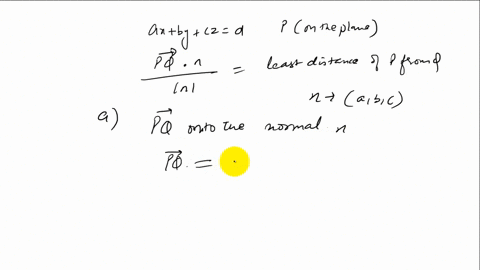 ax+by+cz=d P (on the plane)
PQ · n / |n| = least distance of P from Q
n → (a,b,c)
a) PQ onto the normal n
PQ =